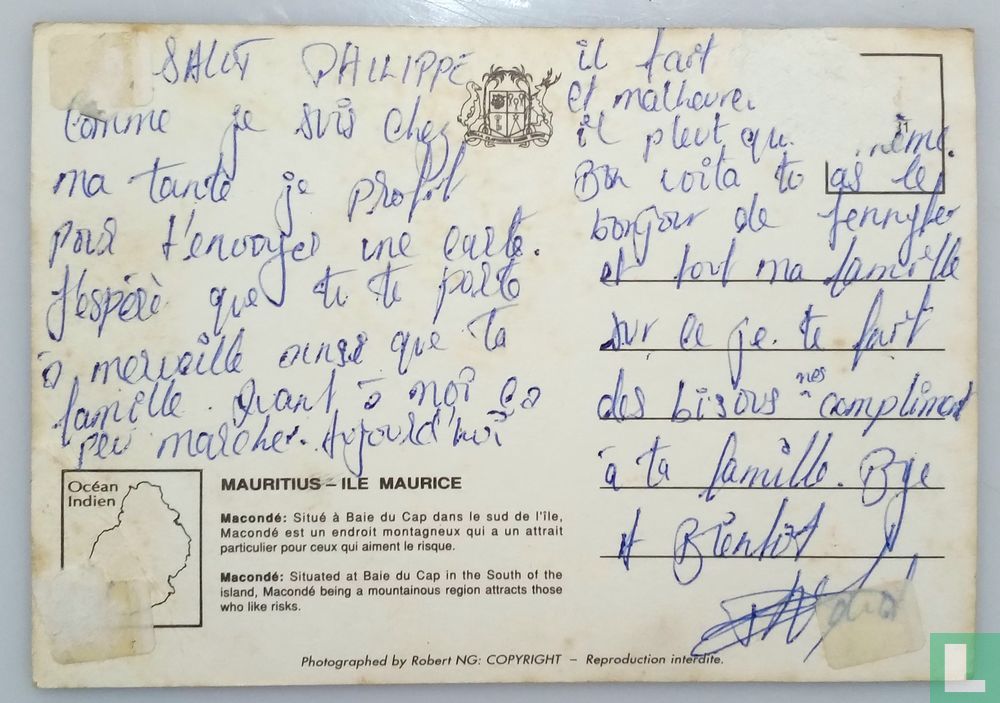 SALUT PHILIPPE
Comme je suis chez
ma tante je profit
pour t'envoyer une carte.
J'espère que tu te porte
à merveille ainse que ta
famille. Quant à moi ça
peu marcher. Aujourd'hui
Océan
Indien
MAURITIUS – ILE MAURICE
Macondé: Situé à Baie du Cap dans le sud de l'île,
Macondé est un endroit montagneux qui a un attrait
particulier pour ceux qui aiment le risque.
Macondé: Situated at Baie du Cap in the South of the
island, Macondé being a mountainous region attracts those
who like risks.
il fait
et malheure
il pleut qu même.
Bon voila tu as le
bonjour de Jennyfer
et tout ma famille
sur ce je te fait
des bisous nos compliment
à ta famille. Bye
et Bientot
Photographed by Robert NG: COPYRIGHT – Reproduction interdite.
L